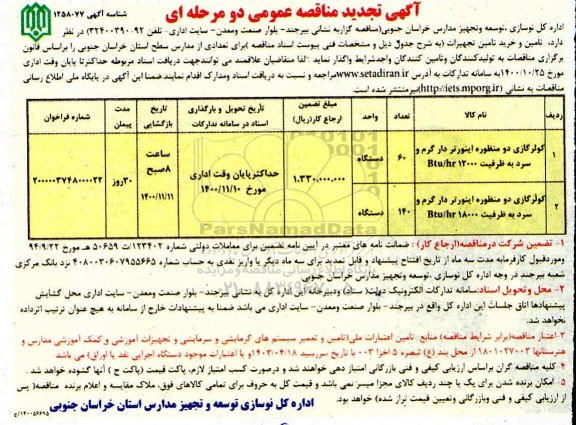 آگهی تجدید مناقصه عمومی دو مرحله ای
شناسه آگهی ۱۲۵۸۰۷۷
اداره کل نوسازی ،توسعه وتجهیز مدارس خراسان جنوبی(مناقصه گزاربه نشانی بیرجند- بلوار صنعت ومعدن- سایت اداری- تلفن ۹۲-۳۲۴۰۰۳۹۰) در نظر
دارد، تامین و خرید تامین تجهیزات (به شرح جدول ذیل و مشخصات فنی پیوست اسناد مناقصه )برای تعدادی از مدارس سطح استان خراسان جنوبی را براساس قانون
برگزاری مناقصات به تولیدکنندگان وتامین کنندگان واجدشرایط واگذار نماید .لذا متقاضیان علاقمند می توانندجهت دریافت اسناد مربوطه حداکثرتا پایان وقت اداری
مورخ ۱۴۰۰/۱۰/۲۵به سامانه تدارکات به آدرس www.setadiran.irمراجعه و نسبت به دریافت اسناد ومدارک اقدام نمایند.ضمنا این آگهی در پایگاه ملی اطلاع رسانی
مناقصات به نشانی (http://iets.mporg.ir)نیزمنتشر شده است.
ردیف | نام کالا | تعداد | واحد | مبلغ تضمین ارجاع کار(ریال) | تأریخ تحویل و بارگذاری اسناد در سامانه تدارکات | تاریخ بازگشایی | مدت پیمان | شماره فراخوان
۱ | کولرگازی دو منظوره اینورتر دار گرم و سرد به ظرفیت ۱۲۰۰۰ Btu/hr | ۶۰ | دستگاه | ۱.۳۳۰.۰۰۰.۰۰۰ | حداکثرپایان وقت اداری مورخ ۱۴۰۰/۱۱/۱۰ | ساعت ۸صبح ۱۴۰۰/۱۱/۱۱ | ۳۰روز | ۲۰۰۰۰۰۳۷۴۸۰۰۰۰۲۲
۲ | کولرگازی دو منظوره اینورتر دار گرم و سرد به ظرفیت ۱۸۰۰۰ Btu/hr | ۱۴۰ | دستگاه
۱- تضمین شرکت درمناقصه(ارجاع کار) : ضمانت نامه های معتبر در آیین نامه تضمین برای معاملات دولتی شماره ۱۲۳۴۰۲/ت ۵۰۶۵۹ هـ مورخ ۹۴/۹/۲۲
وموردقبول کارفرمابه مدت سه ماه از تاریخ افتتاح پیشنهاد و قابل تمدید برای سه ماه دیگر یا واریز نقدی به حساب شماره ۴۰۸۰۰۳۰۶۰۷۹۵۵۶۶۵ نزد بانک مرکزی
شعبه بیرجند در وجه اداره کل نوسازی ،توسعه وتجهیز مدارس خراسان جنوبی
۲- محل وتحویل اسناد:سامانه تدارکات الکترونیک دولت( ستاد) ودبیرخانه این اداره کل به نشانی بیرجند- بلوار صنعت ومعدن- سایت اداری محل گشایش
پیشنهادها اتاق جلسات این اداره کل واقع در بیرجند- بلوار صنعت ومعدن- سایت اداری می باشد ضمنا به پیشنهادات خارج از سامانه به هیچ عنوان ترتیب اثرداده
نخواهد شد.
۳-اعتبار مناقصه(برابر شرایط مناقصه) منابع . تامین اعتبارات ملی(تامین و تعمیر سیستم های گرمایشی و سرمایشی و تجهیزات آموزشی و کمک آموزشی مدارس و
هنرستانها ۱۸۰۱۰۲۷۰۰۲ از محل بند (ع) تبصره ۵ اخزا ۰۰۳ با تاریخ سررسید ۱۴۰۳/۰۴/۱۸و یا اعتبارات موجود دستگاه اجرایی نقد یا اوراق) می باشد
۴- کلیه مناقصه گران براساس ارزیابی کیفی و فنی بازرگانی امتیاز دهی خواهند شد و درصورت کسب امتیاز لازم، پاکت قیمت (پاکت ج ) آنها گشوده خواهد شد .
۵- امکان برنده شدن برای یک یا چند ردیف کالای مجزا میسر نمی باشد و قیمت کل به حروف برای تمامی کالاهای فوق، ملاک مقایسه و اعلام برنده مناقصه( پس
از ارزیابی کیفی و فنی وبازرگانی وتعیین قیمت تراز شده) خواهد بود.
اداره کل نوسازی توسعه و تجهیز مدارس استان خراسان جنوبی
ParsNamadData